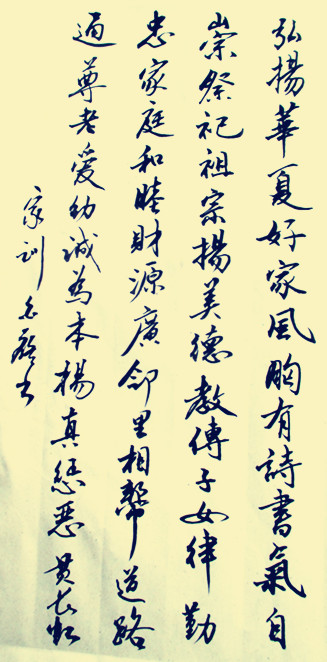 弘揚華夏好家風胸有詩書氣自
崇祭祀祖宗揚美德教傳子女律勤
忠家庭和睦財源廣鄰里相幫道路
通尊老爱幼誠為本揚真惩惡貫长虹
家训